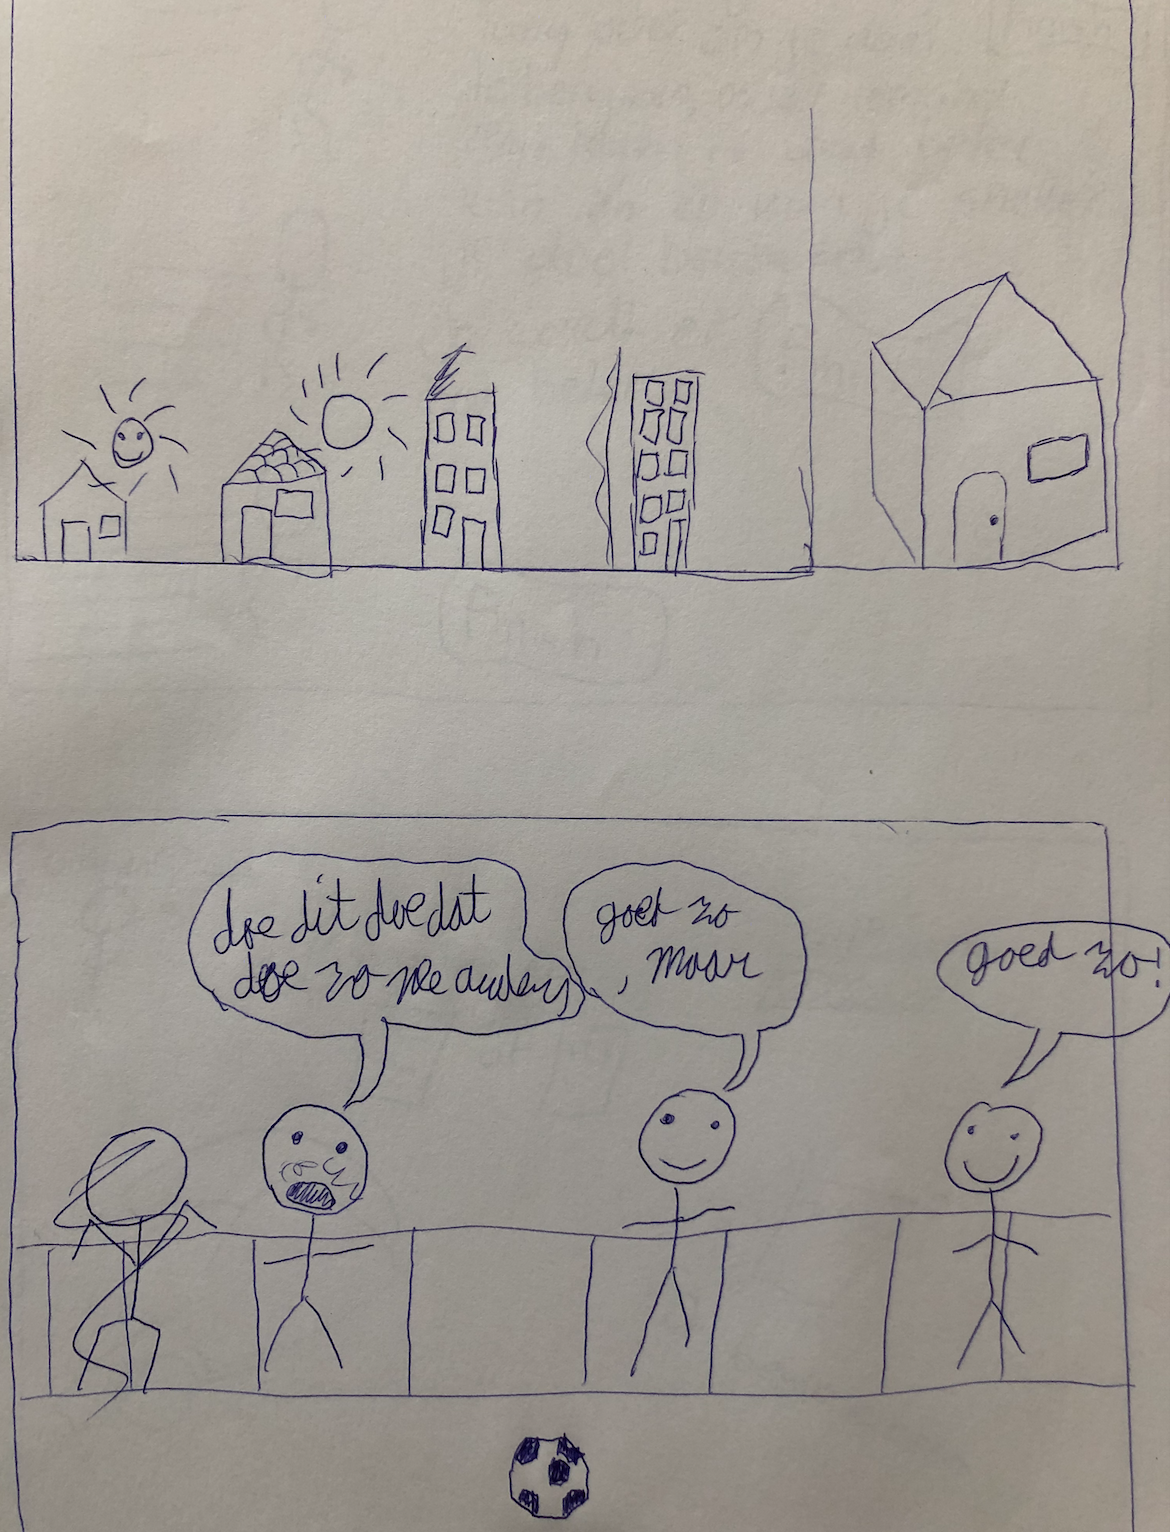 doe dit doe dat
doe zo nee anders
goed zo
, maar
goed zo!